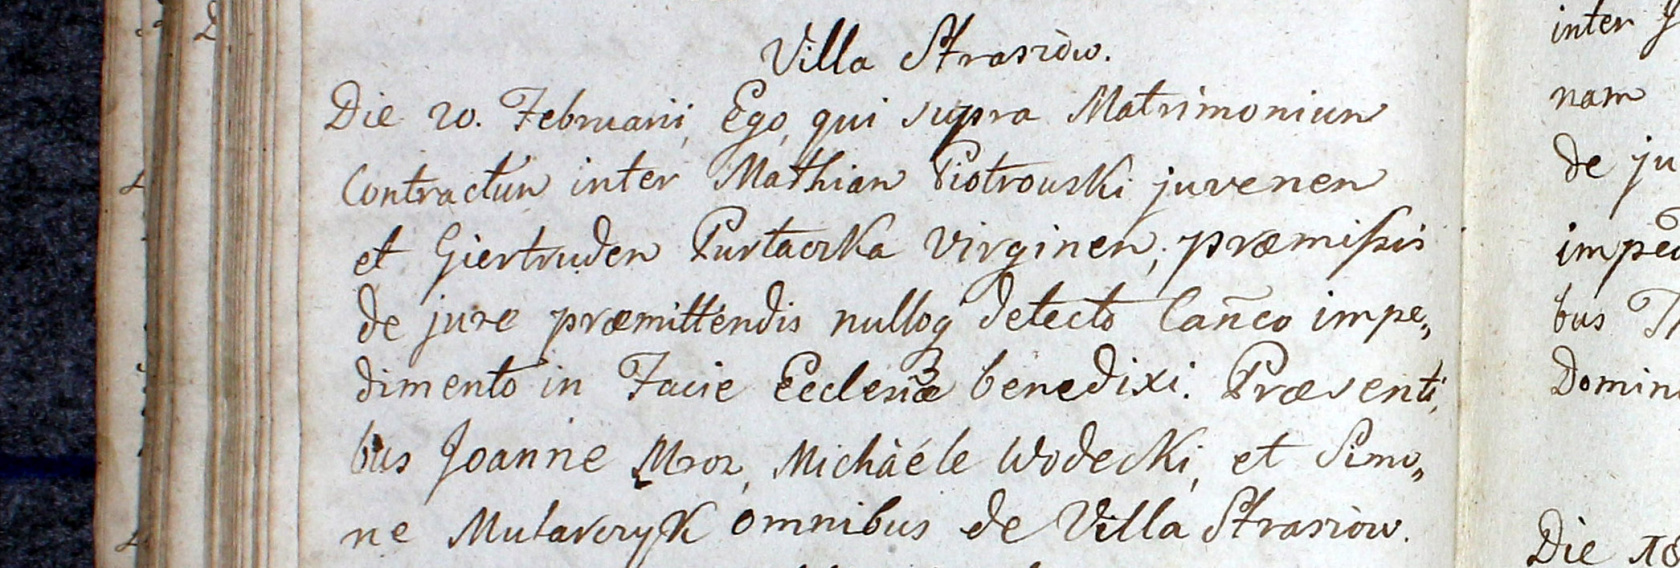 Villa Strasziow.
Die 20. Februarii, Ego, qui supra Matrimonium
Contractum inter Mathiam Piotrowski juvenem
et Giertrudem Purtaczka Virginem, præmissis
de jure præmittendis nulloq detecto Cañco impe„
dimento in Facie Ecclesiæ benedixi. Præsenti„
bus Joanne Mroz, Michàéle Wodecki, et Simo„
ne Mularczyk omnibus de Villa Strasziow.
inter
nam
de ju
impe
bus
Domin
Die 18